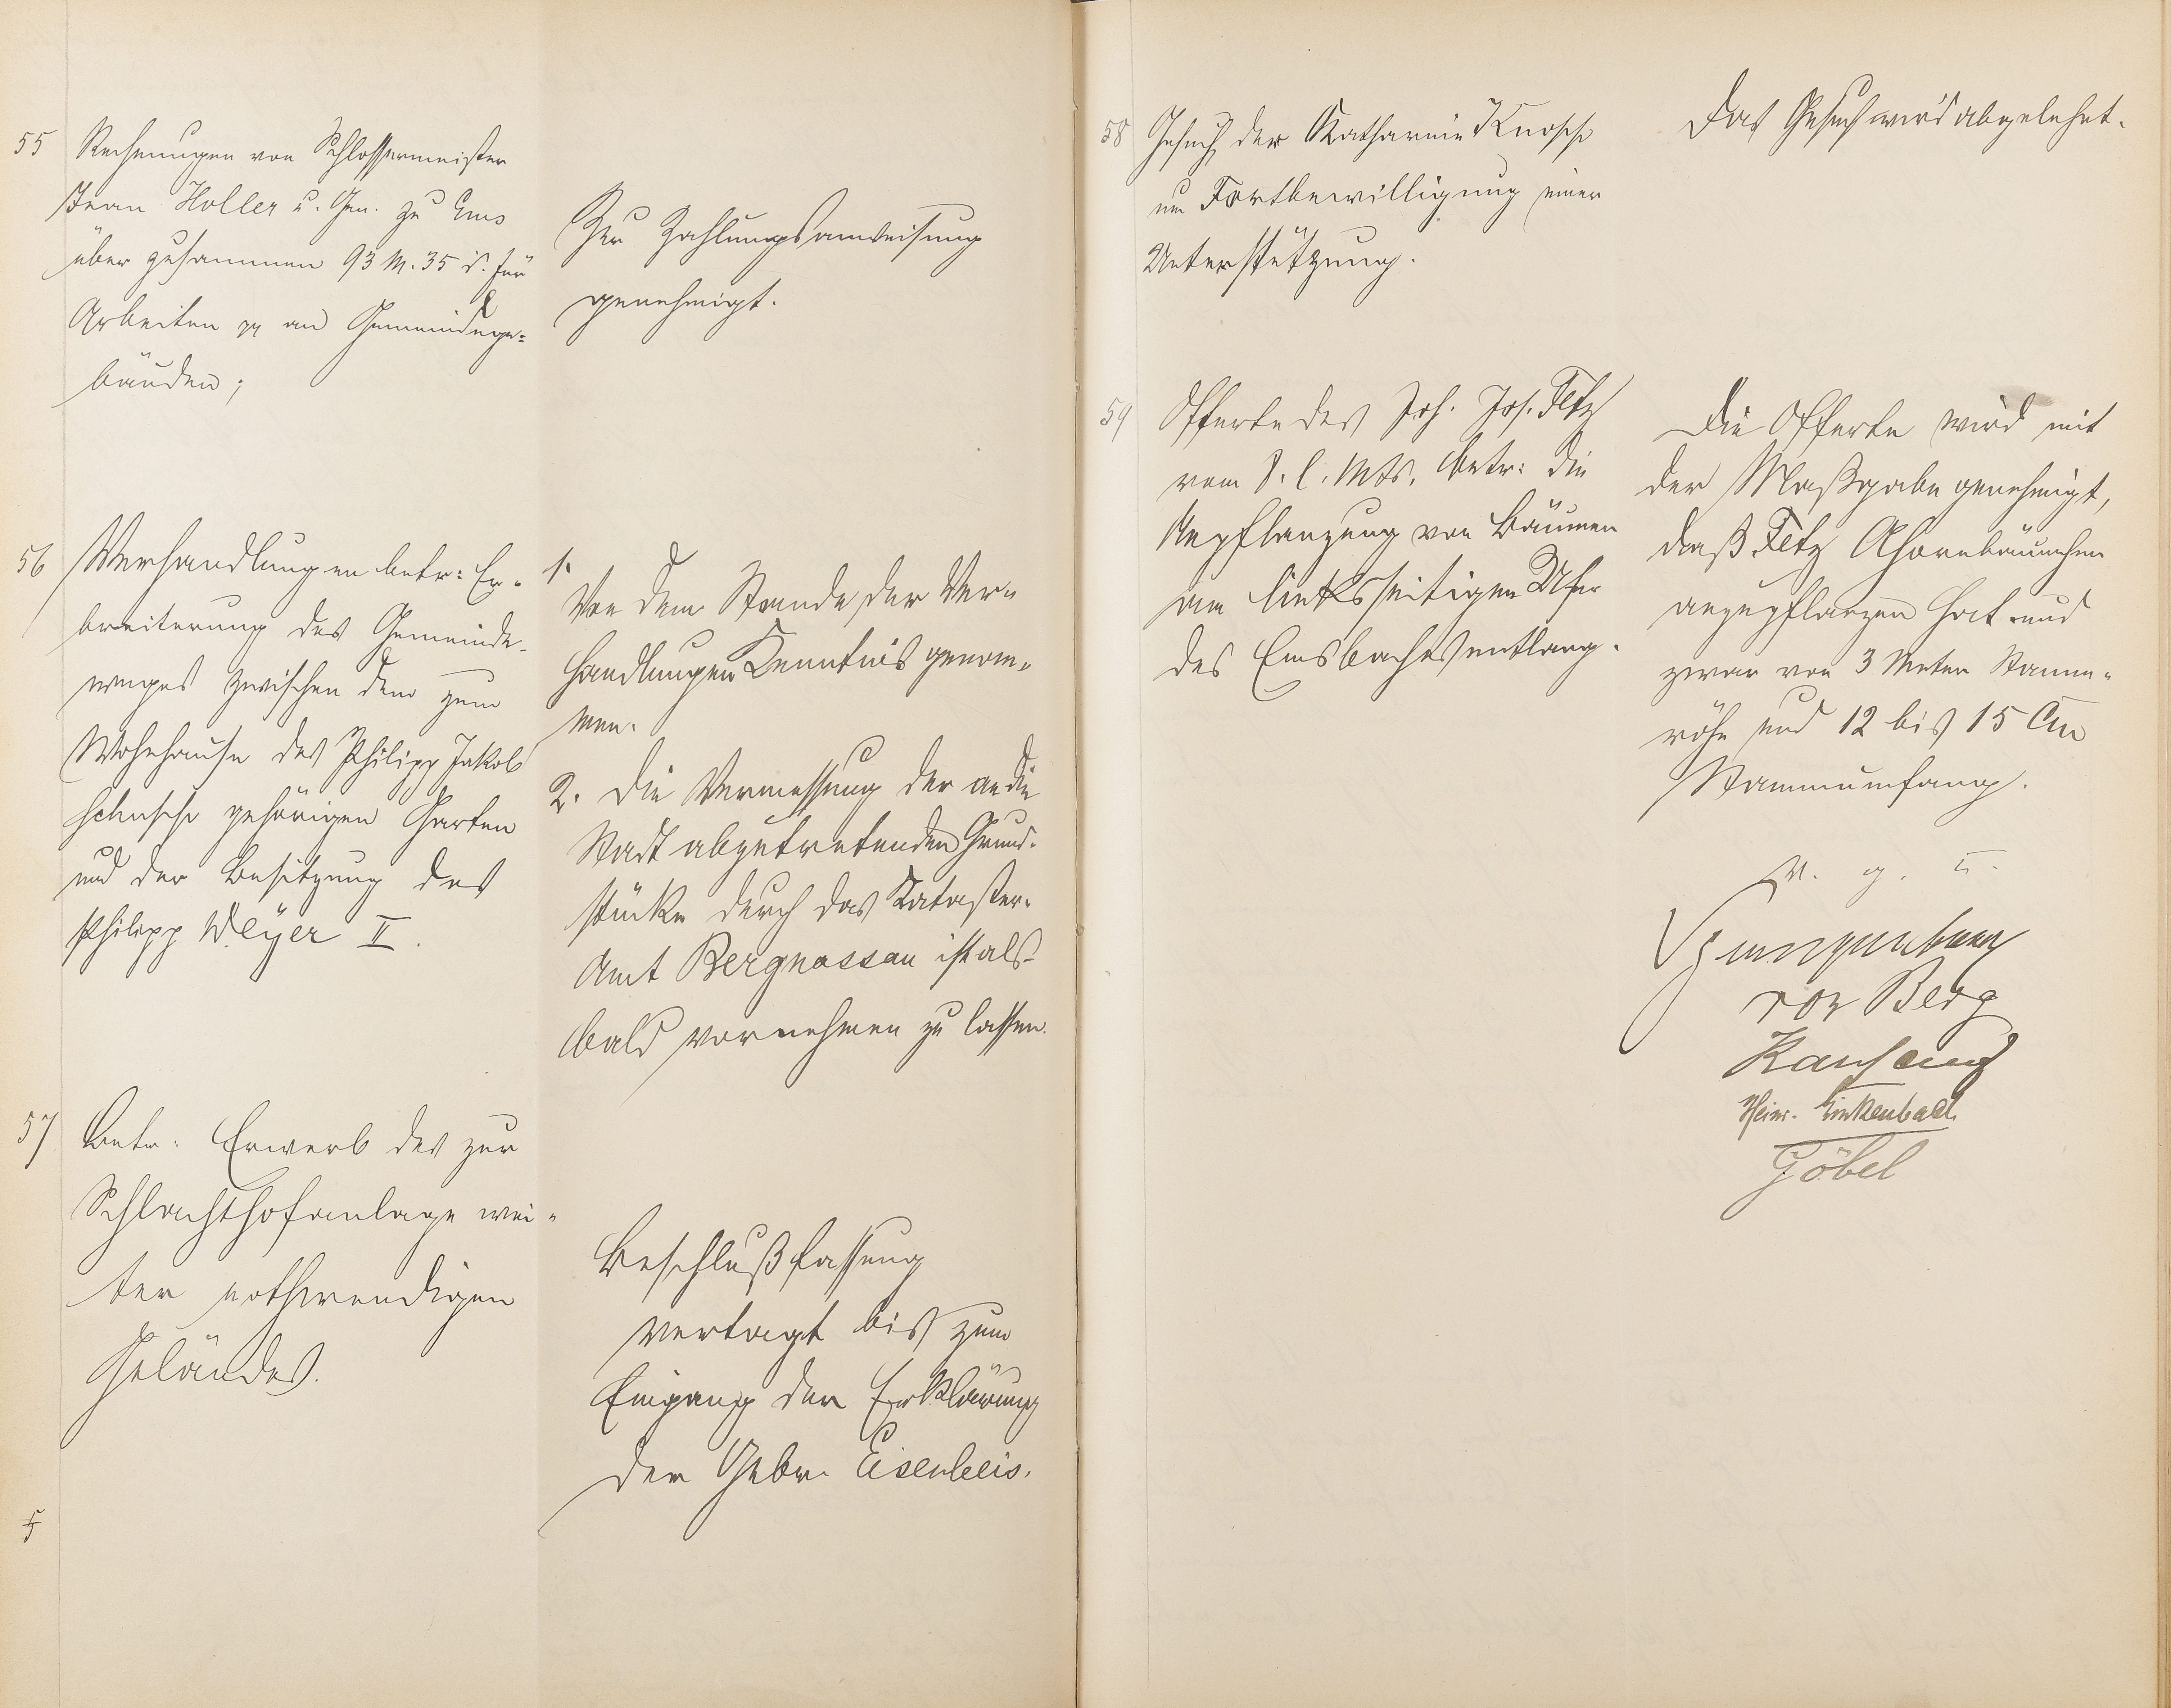 55
Rechnungen von Schlossermeister
Jean Holler u. Gen. zu Ems
über zusammen 93 M. 35 d. für
Arbeiten pp an Gemeindege-
bäuden;
Zur Zahlungsanweisung
genehmigt.
56
Verhandlungen betr: Er-
breiterung des Gemeinde-
weges zwischen dem zum
Wohnhause des Philipp Jakob
gehörigen Garten
und der Besitzung des
Philipp Weyer II.
1.
Von dem Stande der Ver-
handlungen Kenntnis genom-
men.
2. Die Vermessung der an die
Stadt abzutretenden Grund-
stücke durch das Kataster-
Amt Bergnassau ist als-
bald vornehmen zu lassen.
57
Betr. Erwerb des zur
Schlachthofanlage wei-
ter nothwendigen
Geländes.
Beschlußfassung
vertagt bis zum
Eingang der Erklärung
der Gebr. Eisenbeis.
5
58
Gesuch der Katharina Knosp
um Fortbewilligung einer
Unterstützung.
Das Gesuch wird abgelehnt.
59
Offerte des Joh. Jos. Fetz
vom 8. l. Mts. betr: die
Anpflanzung von Bäumen
am linksseitigen Ufer
des Emsbaches entlang.
Die Offerte wird mit
der Maßgabe genehmigt,
daß Fetz Ahornbäumchen
anzupflanzen hat und
zwar von 3 Meter Stamm-
höhe und 12 bis 15 Cm
Stammumfang.
v. g. u.
von Berg
Heinr. Linkenbach
Göbel